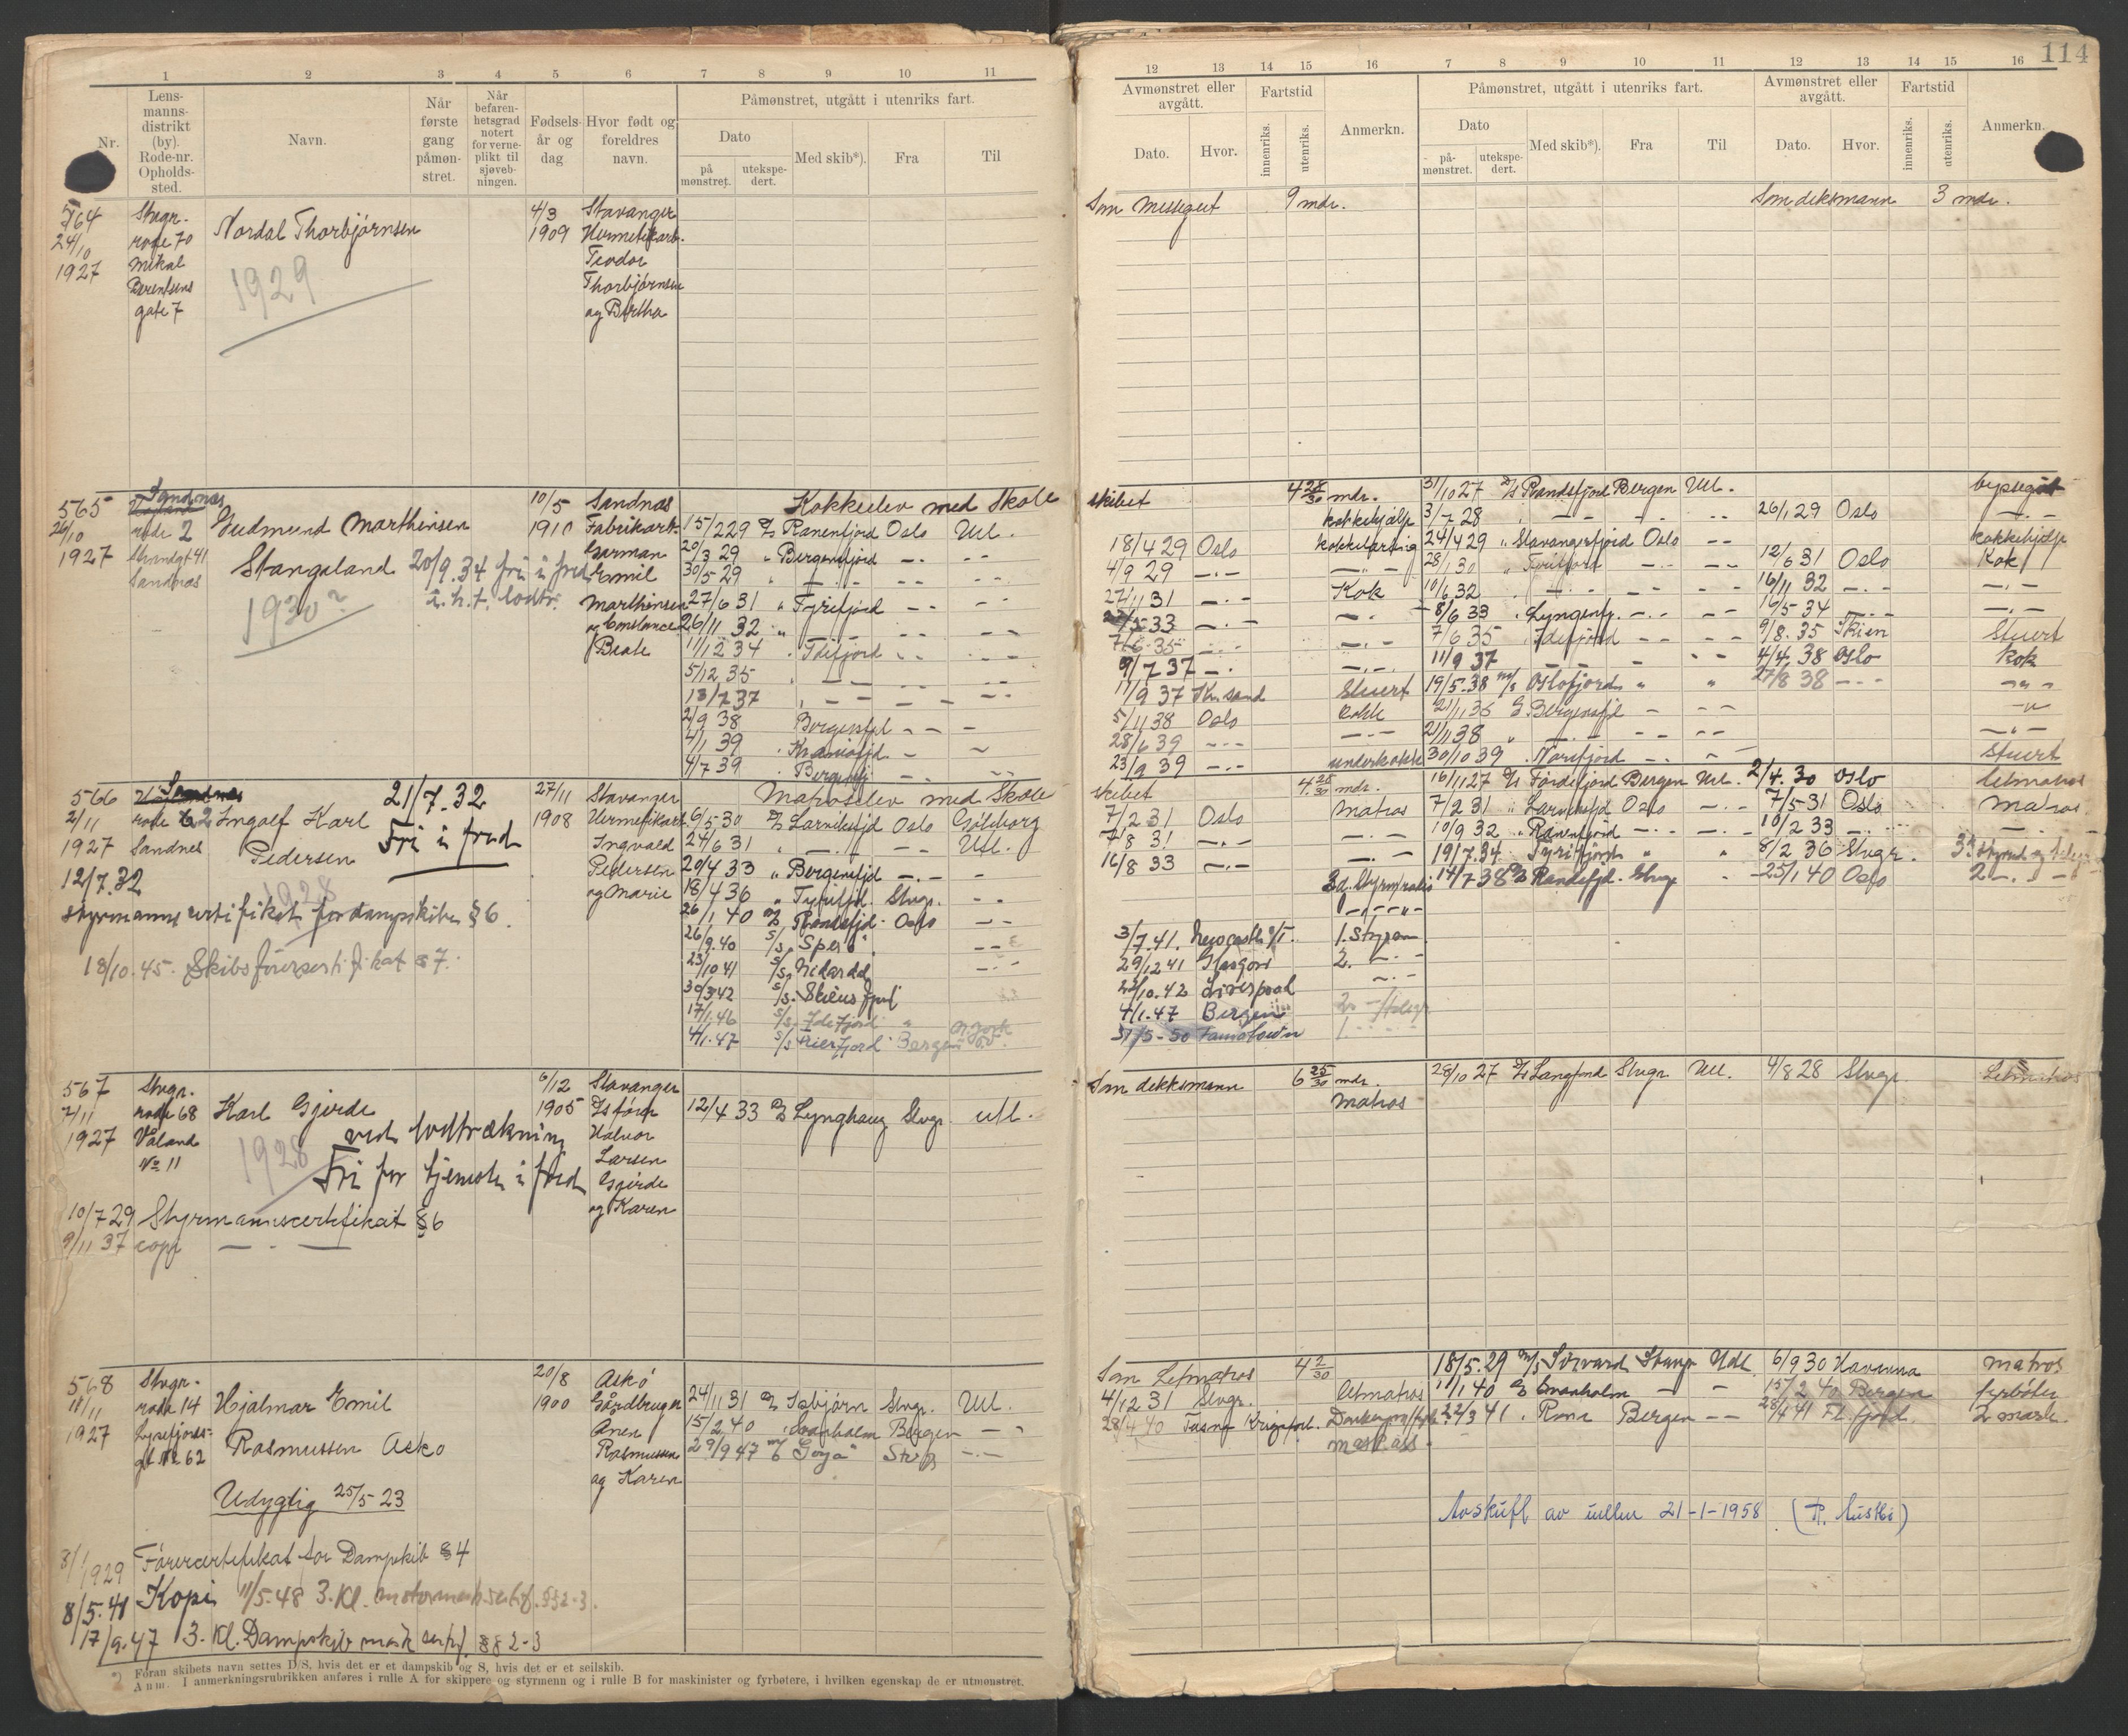 114
1 2 3 4 5 6 7 8 9 10 11
Nr.
Lens-
manns-
distrikt
(by).
Rode-nr.
Opholds-
sted.
Navn.
Når
første
gang
påmøn-
stret.
Når
befaren-
hetsgrad
notert
for verne-
plikt til
sjøveb-
ningen.
Fødsels-
år og
dag
Hvor født og
foreldres
navn.
Påmønstret, utgått i utenriks fart.
Dato
på
mønstret.
utekspe-
dert.
Med skib*).
Fra
Til
564
24/10
1927
Stvgr.
rode 70
Mikal
Berentsens
gate 7
Nordal Thorbjörnsen
1929
4/3
1909
Stavanger
Hermetikarb.
Teodor
Thorbjörnsen
og Bertha
565
26/10
1927
Sandnæs
rode 2
Strandgt 41
Sandnæs
Gudmund Marthinsen
Stangeland
20/9.34 fri i fred
i. h. t. lodtr.
1930?
10/5
1910
Sandnæs
Fabrikarb.
Garman
Emil
Marthinsen
og Constance
Beate
Kokkelev med Skole
15/2 29 D/S Ranenfjord Oslo Utl.
20/3 29 " Bergensfjord — —
30/5 29 " — — —
27/6 31 " Tyrifjord — —
26/11 32 " — — —
11/12 34 " Idefjord — —
5/12 35 " — — —
13/7 37 " — — —
2/9 38 Bergensfjd — —
4/1 39 " — ~
4/7 39 " Bergensfj — —
566
2/11
1927
Sandnæs
rode 2
Sandnes
Ingolf Karl
Pedersen
21/7.32
Fri i fred
1928
12/7.32
styrmannscertifikat for dampskibe §6.
18/10.45. Skibsförersertifikat §7.
27/11
1908
Stavanger
Hermetikarb.
Ingvald
Pedersen
og Marie
Matroselev med Skole
6/5 30 D/S Larviksfjd Oslo Göteborg
24/6 31 " — — Utl.
20/4 33 " Bergensfjd — —
18/4 36 " Tyrifjd. Stvgr. —
26/1 40 D/S Randsfjd. Oslo —
26/9.40 S/S Spero
23/10 41 S/S Nidardal
30/3 42 S/S. Skiensfjord
17/1.46 S/S Idefjord
4/1.47 S/S Frierfjord Bergen
567
2/11
1927
Stvgr.
rode 68
Våland
No 11
Karl Gjerde
1928
ved lodtrækning
Fri for tjeneste i fred
10/7 29 Styrmannscertifikat §6
9/11 37 copi — —
6/12
1905
Stavanger
Halvor
Larsen
Gjerde
og Karen
12/4 33 D/S Lynghaug Stvgr. utl.
568
11/11
1927
Stvgr.
rode 14
gt No 62
Hjalmar Emil
Rasmussen Askö
Udygtig 25/5 23
3/1 1929 Förercertifikat for Dampskib §4
8/5.41 Kopi 11/5.48 3. Kl. motormask.sertif. §§2-3.
17/9.47 3. Kl. Dampskib mask sertf. §§ 2-3
20/8
1900
Askö
Gårdbruger
Anen
Rasmussen
og Karen
24/11 31 D/S Isbjörn Stvgr. Utl.
15/2 40 " Svanholm Bergen —
29/9 47 "Goya" Stvg —
*) Foran skibets navn settes D/S, hvis det er et dampskib og S, hvis det er et seilskib.
Anm. I anmerkningsrubrikken anføres i rulle A for skippere og styrmenn og i rulle B for maskinister og fyrbøtere, i hvilken egenskap de er utmønstret.
12 13 14 15 16 7 8 9 10 11 12 13 14 15 16
Avmønstret eller
avgått.
Dato.
Hvor.
Fartstid
innenriks.
utenriks.
Anmerkn.
Påmønstret, utgått i utenriks fart.
Dato
på-
mønstret.
utekspe-
dert.
Med skib*).
Fra
Til
Avmønstret eller
avgått.
Dato.
Hvor.
Fartstid
innenriks.
utenriks.
Anmerkn.
Som Messegut 9 mdr.
Som dekksmann 3 mdr.
skibet 4 28/30 mdr. 31/10 27 D/S Randsfjord Bergen Utl. byssegut
kokkehjælp 3/7 28 — — — 26/1 29 Oslo —
18/4 29 Oslo kokkelærling 24/4 29 " Stavangerfjord Oslo — kokkehjælp
4/9 29 — — 28/1 30 " — — 12/6 31 Oslo Kok
27/11 31 — Kok 10/6 32 — — — 16/11 32 — —
33 — — 8/6 33 " Lyngenfj. — — 16/5 34 — —
7/6 35 — — 7/6 35 " Idefjord — — 9/8.35 Skien Stuert
9/7 37 — — 11/9 37 — — — 4/4.38 Oslo kok
11/9 37 Kr.sand Stuert 19/5.38 M/S Oslofjord " " 27/8 38 — —
5/11 38 Oslo kokk 21/11 36 Bergensfjd — —
28/6 39 — — 21/1 38 " — — —
23/9 39 — underkokk 30/10 39 " Norefjord — — Stuert
skibet 4 28/30 mdr. 16/11 27 D/S Fördefjord Bergen Utl. 2/4.30 Oslo letmatros
7/2 31 Oslo Matros 7/2 31 " Larviksfjd Oslo — 7/5 31 Oslo Matros
7/8 31 — — 10/9 32 " Ranenfjord — — 10/2 33 — —
16/8 33 — — 19/7.34 " Tyrifjord " " 8/2 36 Stvgr.
14/7 38 D/S Randsfjd. Stvgr 25/1 40 Oslo 2 — —
3/7.41. Newcastle 1. Styrm
29/12 41 Glasgow 2. —
22/10.42 Liverpool —
4/1.47 Bergen
31/5-50 Jamestown 1.
Som dekksmann 6 25/30 mdr. 28/10 27 D/S Langfond Stvgr Utl. 4/8 28 Stvgr Letmatros
Matros
Som Letmatros 4 2/30 18/5.29 M/S Sörvard Stavgr Utl. 6/9 30 Havanna matros
4/12 31 Stvgr. letmatros 11/1 40 D/S Svanholm — — 15/2 40 Bergen fyrböter
28/4 40 22/3 41 " Rona Bergen — 28/4 41 2 mask.
mask.ass.
Avskrift av rullen 21-1-1958